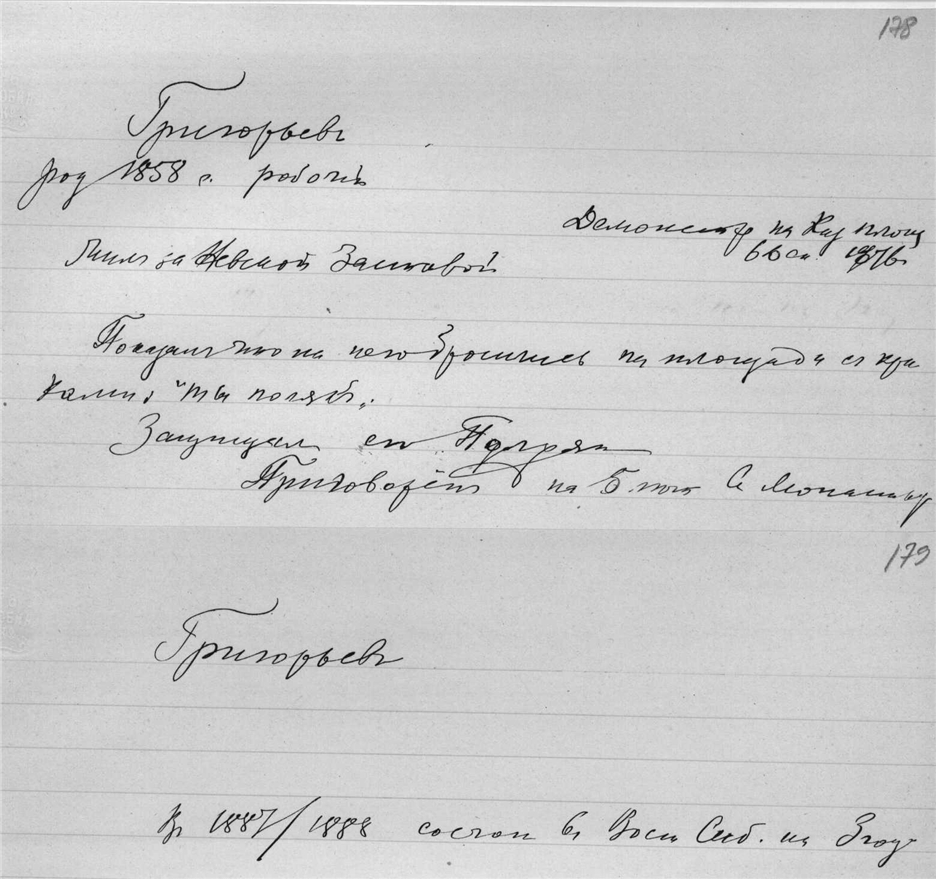 178
Григорьевъ
род 1858 г. рабочій
Демонстр на Каз площ
6 Дек. 1876
Жилъ за Невской Заставой
Показалъ что на него бросились на площади съ кри
ками: "ты полякъ".
Защищал его
Приговоренъ на 5 лѣтъ въ Монастырь
179
Григорьевъ
Въ 1887/1888 состоял въ Вост Сиб. на 3 год